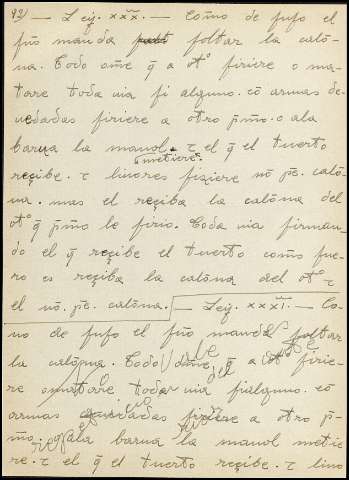 92) — Leý. xxx. — Como de suso el
ſño manda ſoltar la calo-
na. Todo ome q̃ a otº firiere o ma-
tare toda via ſi alguno. cõ armas de-
vedadas firiere a otro pmo. o ala
barua la mano metiere. τ el q̃ el tuerto
reçibe. τ liuores fiziere nõ pe. calo-
na. mas el reçiba la calona del
otº q̃ pmo le firio. Toda via firman-
do el q̃ reçibe el tuerto como fue-
ro es reçiba la calona del otº τ
el nõ. pe. calona. — Leý. xxxi. — Co-
mo de suso el ſño manda ſoltar
la calona. Todo ome q̃ a otº firie-
re o matare toda via ſi alguno. cõ
armas firiere a otro p-
mo. o ala barua la mano metie-
re. τ el q̃ el tuerto reçibe. τ liuo